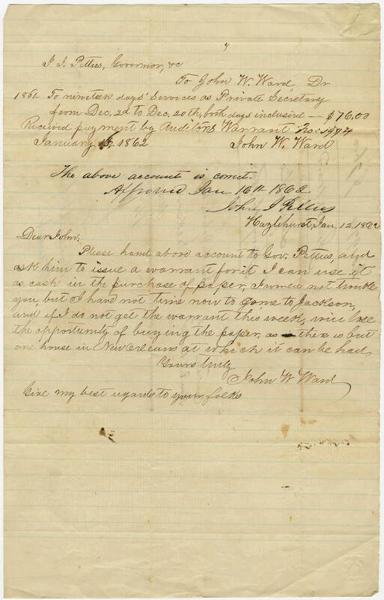 J. J. Pettus, Governor, &c
To John W. Ward Dr
1861 To nineteen days' Services as Private Secretary
from Dec. 2d to Dec. 20th, both days inclusive — $76.00
Received payment by Auditors Warrant No:
January 1862 John W. Ward
The above account is correct
Approved Jan 16th 1862
John J Pettus
Hazlehurst, Jan, 12, 1862
Dear John,
Please hand above account to Gov. Pettus, and
ask him to issue a warrant for it I can use it
as cash in the purchase of paper, I would not trouble
you, but I have not time now to come to Jackson,
and if I do not get the warrant this week, will lose
the opportunity of buying the paper, as there is but
one house in New Orleans at which it can be had,
Yours truly
John W Ward
Give my best regards to your folks